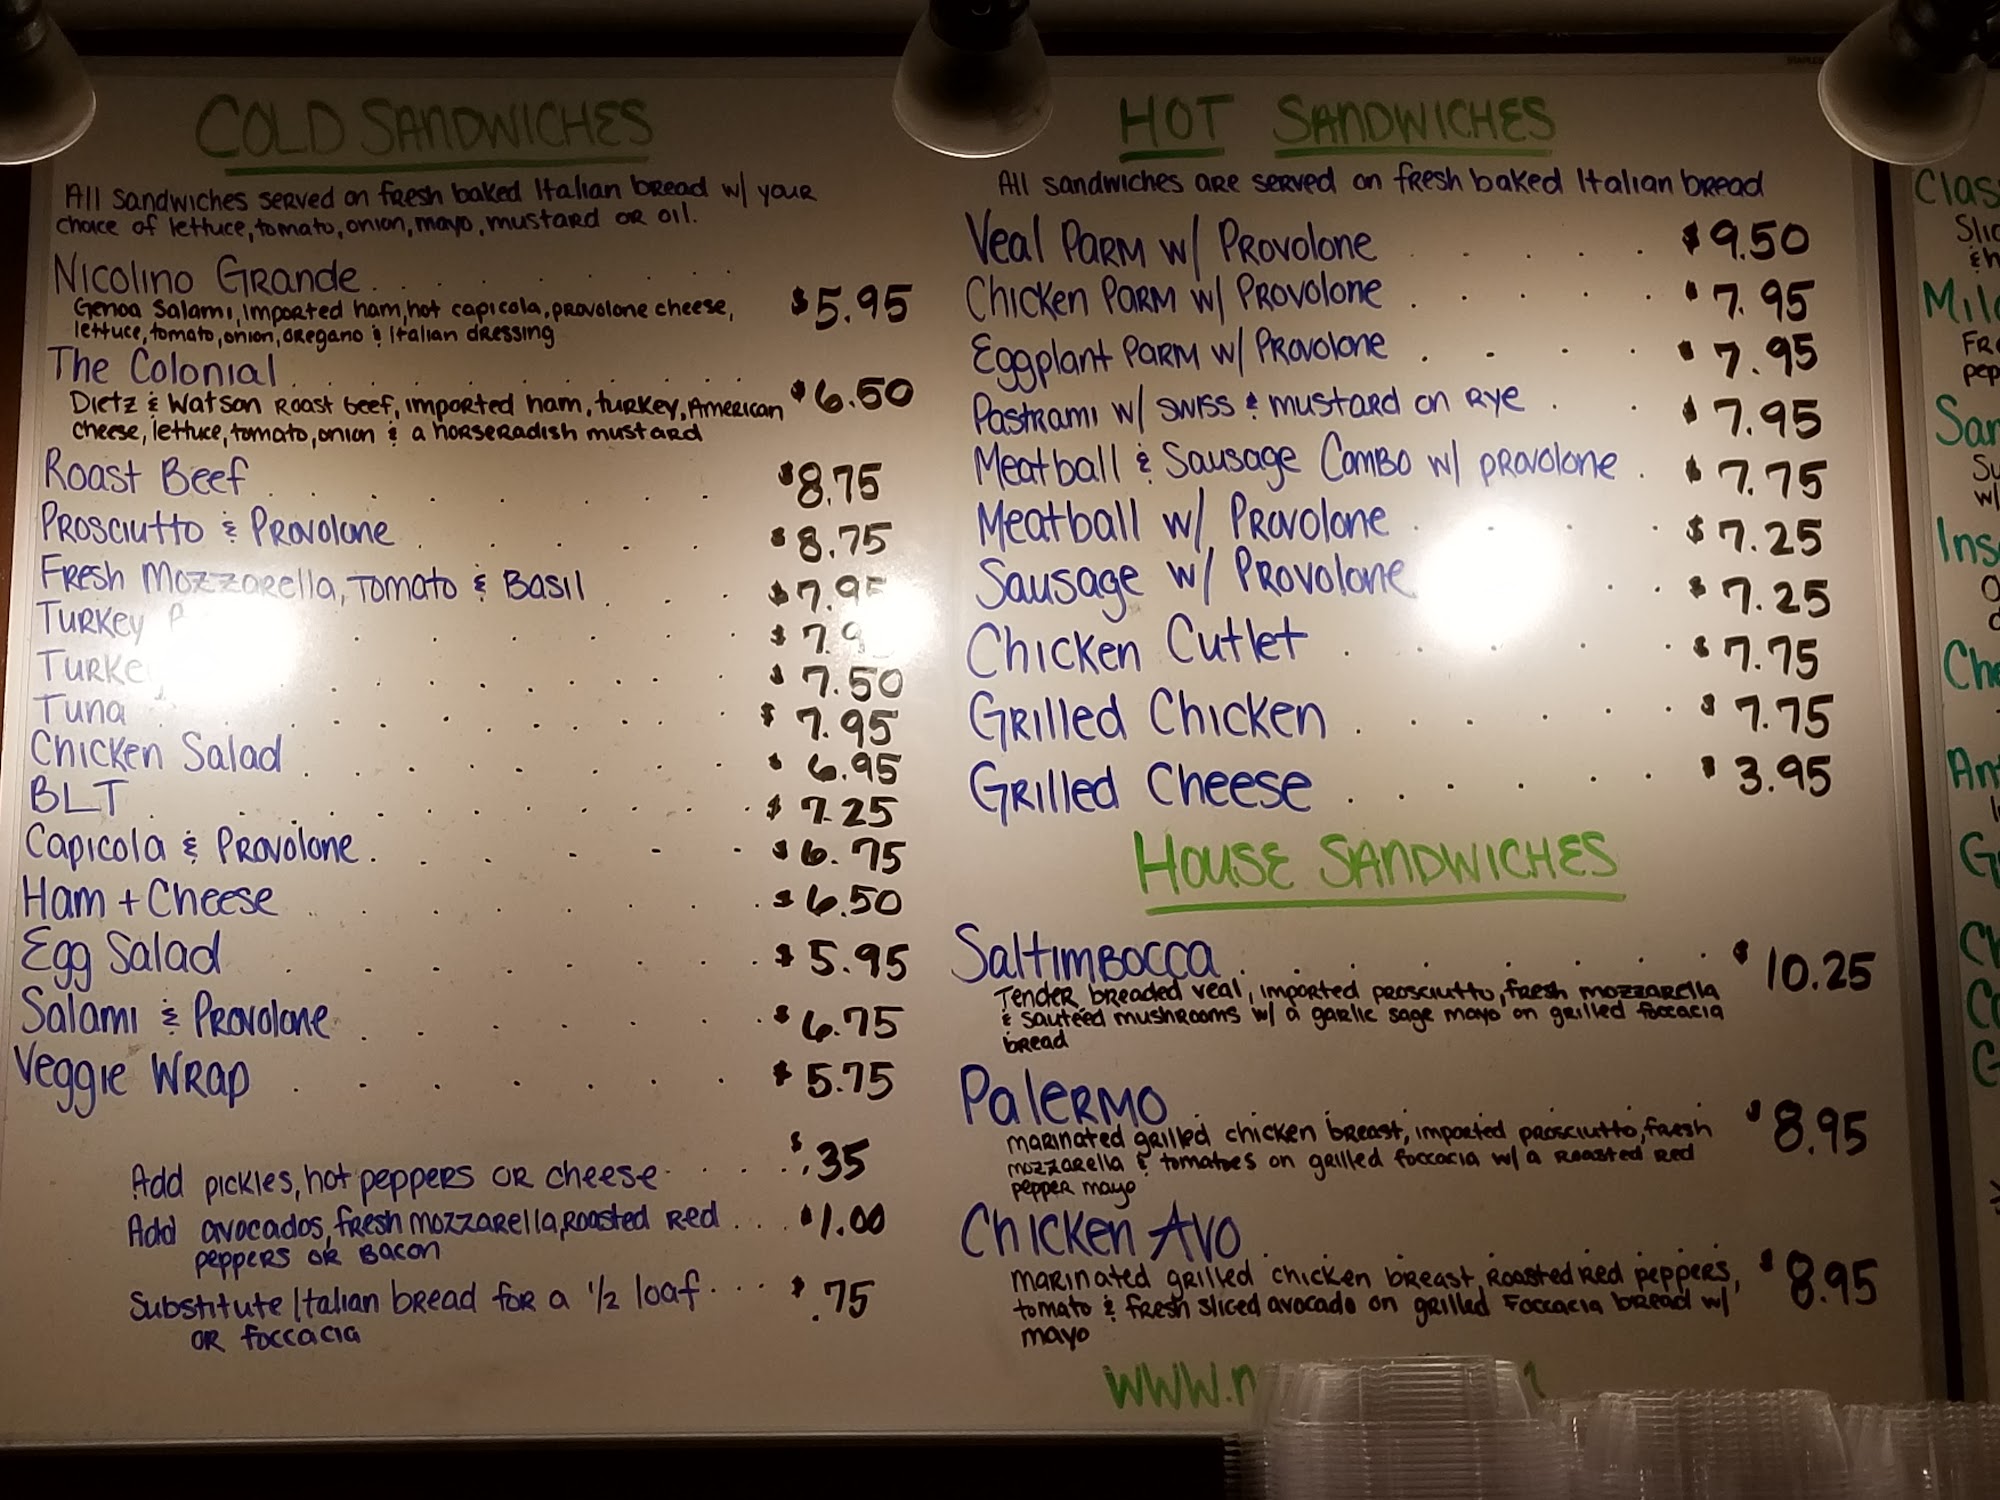 COLD SANDWICHES
All sandwiches served on fresh baked Italian bread w/ your
choice of lettuce, tomato, onion, mayo, mustard or oil.
Nicolino Grande . . . . . . . $5.95
Genoa Salami, imported ham, hot capicola, provolone cheese,
lettuce, tomato, onion, oregano & Italian dressing
The Colonial . . . . . . . . . $6.50
Dietz & Watson roast beef, imported ham, turkey, American
cheese, lettuce, tomato, onion & a horseradish mustard
Roast Beef . . . . . . . . $8.75
Prosciutto & Provolone . . . . . $8.75
Fresh Mozzarella, Tomato & Basil . . . $7.95
Turkey . . . . . . . $7.9
Turke . . . . . . . . $7.50
Tuna . . . . . . . . . $7.95
Chicken Salad . . . . . . . . $6.95
BLT . . . . . . . . . . $7.25
Capicola & Provolone . . . . . . $6.75
Ham + Cheese . . . . . . . $6.50
Egg Salad . . . . . . . . $5.95
Salami & Provolone . . . . . . $6.75
Veggie Wrap . . . . . . . $5.75
Add pickles, hot peppers or cheese . . . . $.35
Add avocados, fresh mozzarella, roasted red . . . $1.00
peppers or bacon
Substitute Italian bread for a 1/2 loaf . . . . $.75
or foccacia
HOT SANDWICHES
All sandwiches are served on fresh baked Italian bread
Veal Parm w/ Provolone . . . . . $9.50
Chicken Parm w/ Provolone . . . . . $7.95
Eggplant Parm w/ Provolone . . . . . $7.95
Pastrami w/ swiss & mustard on rye . . . $7.95
Meatball & Sausage Combo w/ provolone . $7.75
Meatball w/ Provolone . . . . $7.25
Sausage w/ Provolone . . . $7.25
Chicken Cutlet . . . . . . . $7.75
Grilled Chicken . . . . . . . $7.75
Grilled Cheese . . . . . . . $3.95
HOUSE SANDWICHES
Saltimbocca . . . . . . . . . $10.25
Tender breaded veal, imported prosciutto, fresh mozzarella
& sauteéd mushrooms w/ a garlic sage mayo on grilled foccacia
bread
Palermo . . . . . . . $8.95
marinated grilled chicken breast, imported prosciutto, fresh
mozzarella & tomatoes on grilled foccacia w/ a roasted red
pepper mayo
Chicken Avo . . . . . . . $8.95
marinated grilled chicken breast, roasted red peppers,
tomato & fresh sliced avocado on grilled foccacia bread w/
mayo
www.n
Clas
Slic
Mild
Fre
pep
San
Su
w/
Ins
Che
Ant